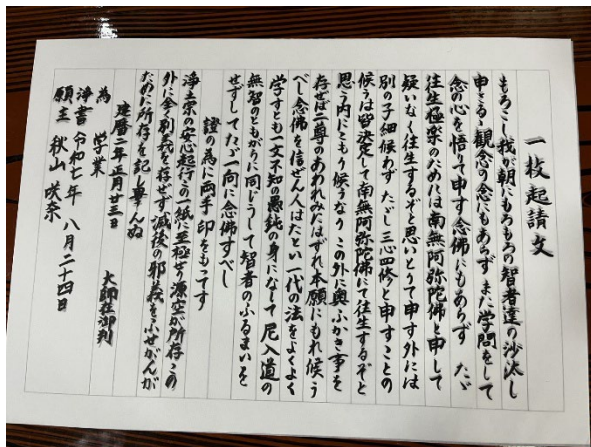 一枚起請文
もろこし我が朝にもろもろの智者達の沙汰し
申さるる観念の念にもあらず また学問をして
念の心を悟りて申す念佛にもあらず たゞ
往生極楽のためには南無阿弥陀佛と申して
疑いなく往生するぞと思いとりて申す外には
別の子細候わず たゞし三心四修と申すことの
候うは皆決定して南無阿弥陀佛にて往生するぞと
思う内にこもり候うなり この外に奥ふかき事を
存ぜば二尊のあわれみにはずれ本願にもれ候う
べし 念佛を信ぜん人はたとい一代の法をよくよく
学すとも一文不知の愚鈍の身になして 尼入道の
無智のともがらに同じうして智者のふるまいを
せずしてたゞ一向に念佛すべし
證の為に両手印をもってす
浄土宗の安心起行この一紙に至極せり 源空が所存この
外に全く別義を存ぜず 滅後の邪義をふせがんが
ために所存を記し畢んぬ
建暦二年正月廿三日 大師在御判
為 学業
浄書 令和七年 八月二十四日
願主 秋山 咲奈